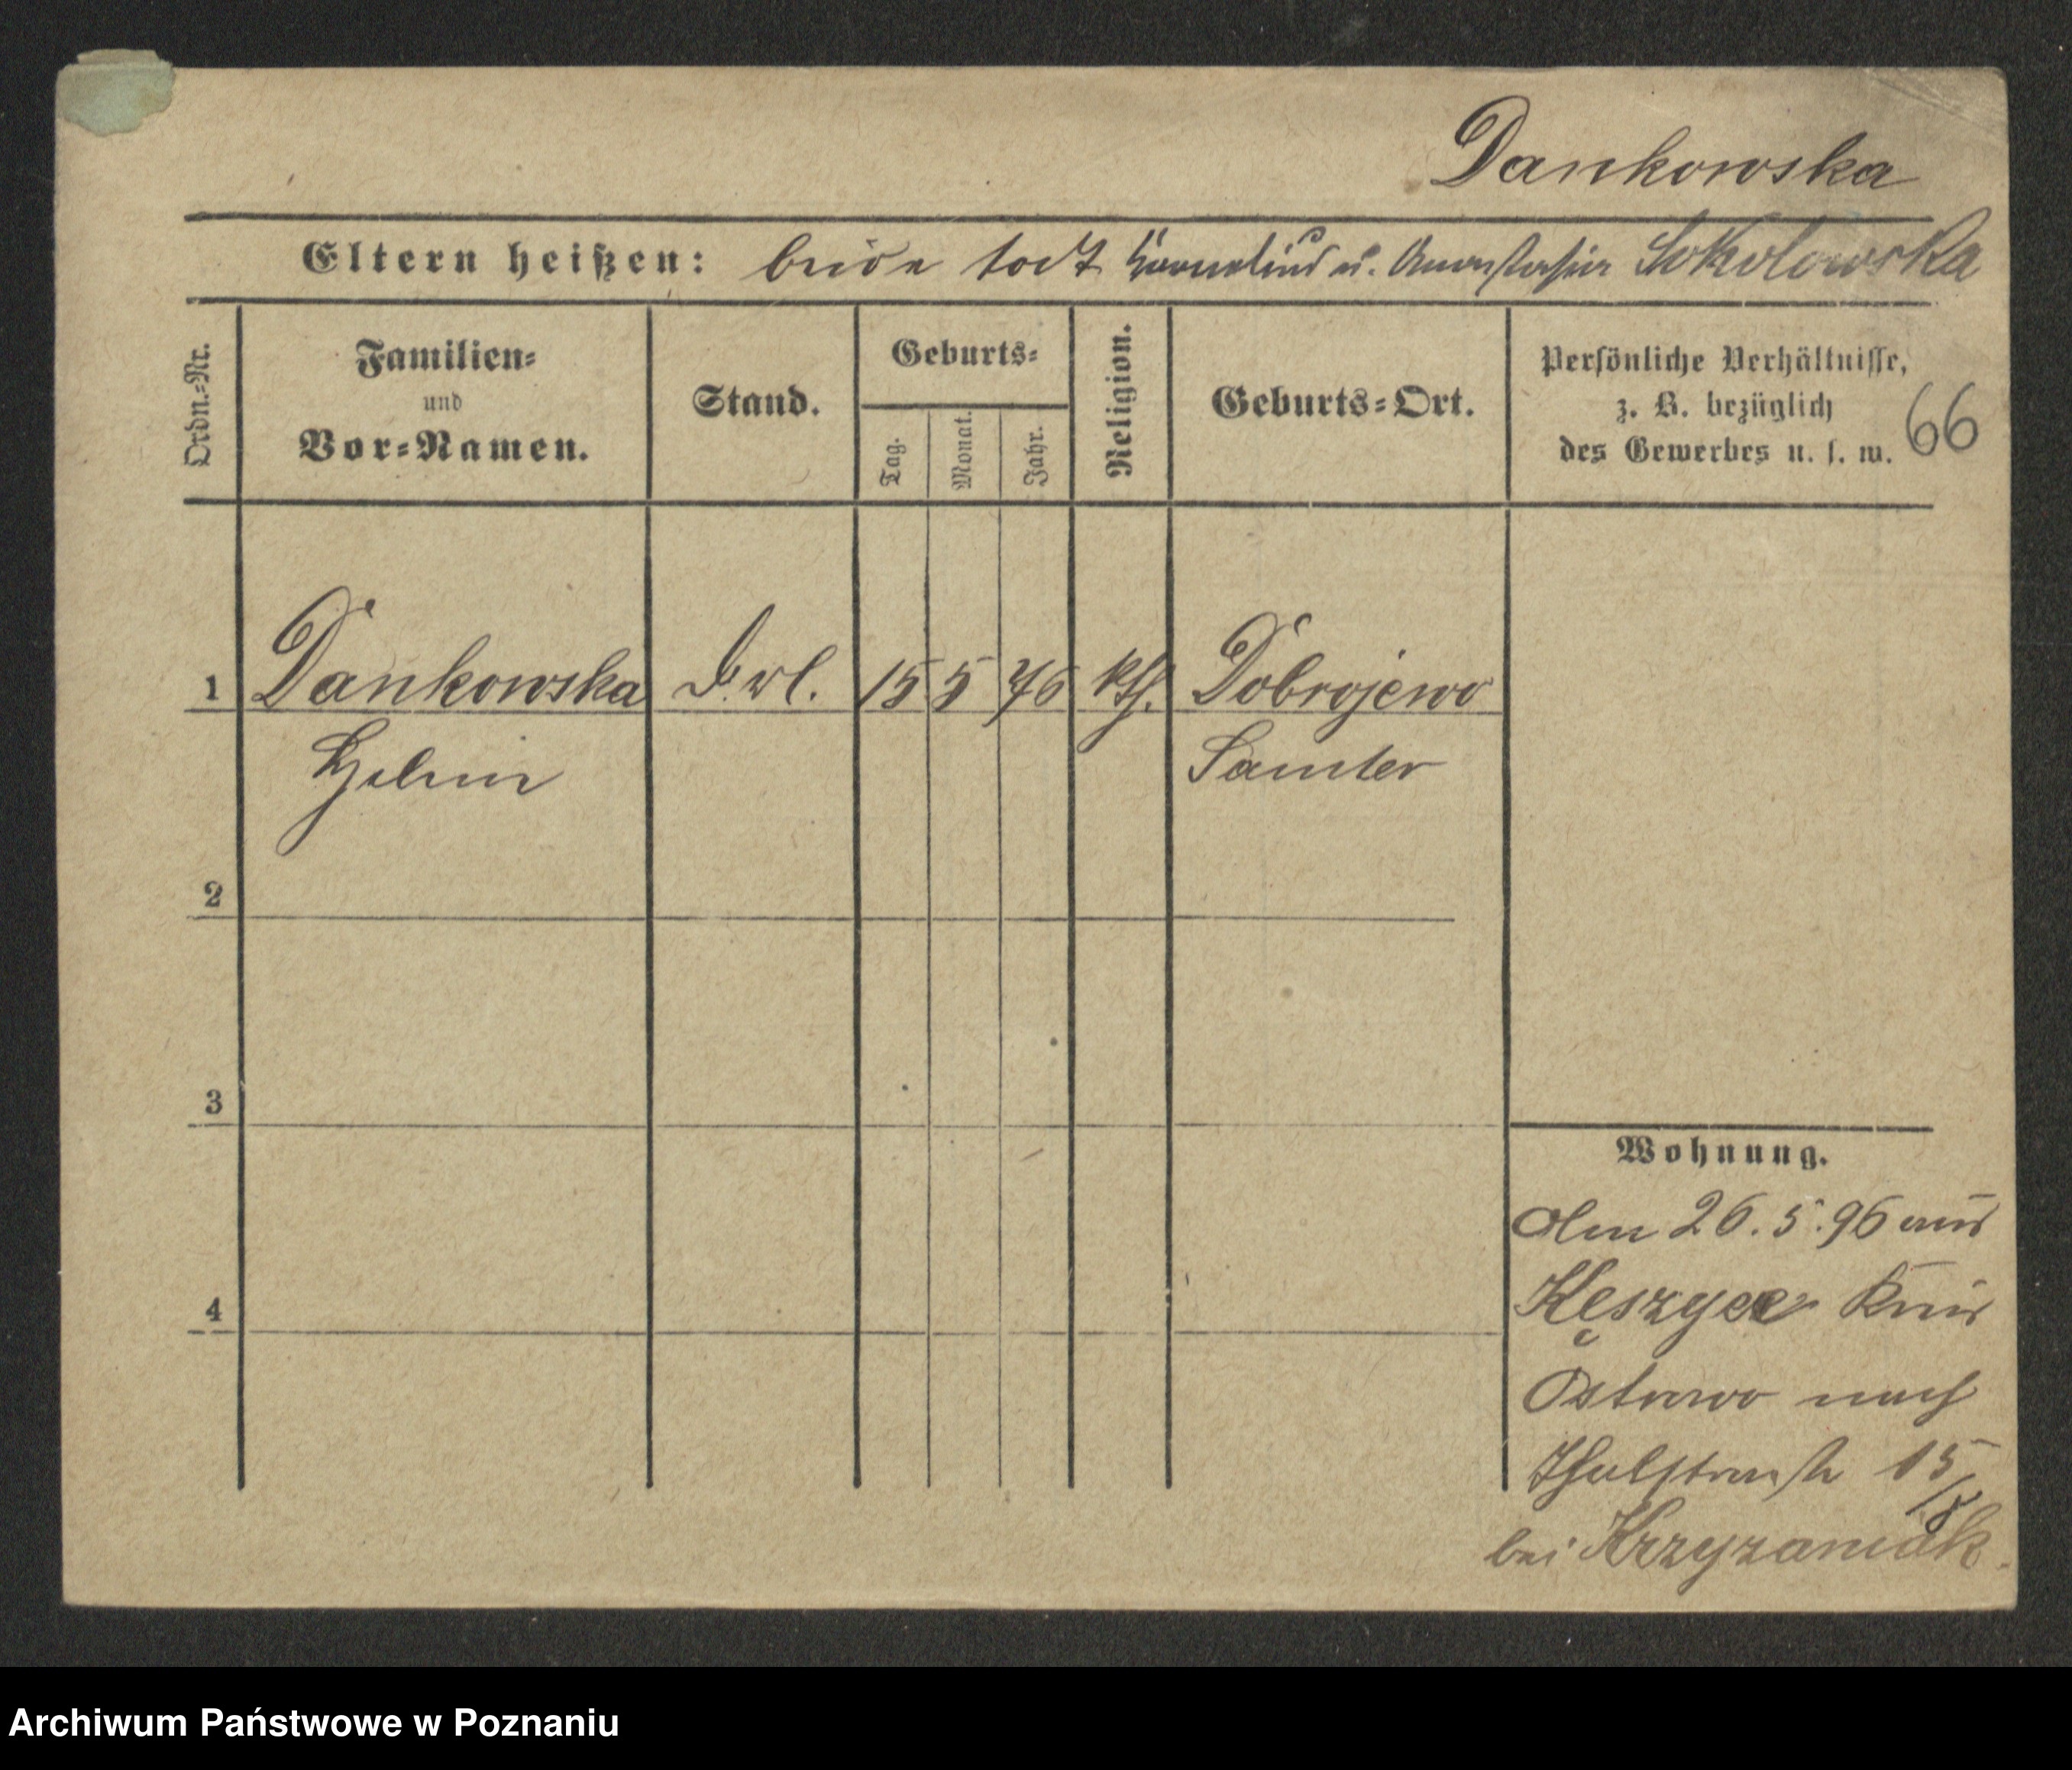 Dankowska
Eltern heißen: beide todt Cornelius u. Anastasia Sokolowska
Ordn.-Nr.
Familien-
und
Vor-Namen.
Stand.
Geburts-
Tag.
Monat.
Jahr.
Religion.
Geburts-Ort.
Persönliche Verhältnisse,
z. B. bezüglich
des Gewerbes u. s. w.
66
1 Dankowska 15 5 76 kth. Dobrojewo
Samter
2
3
4
Wohnung.
Am 26.5.96 aus
Kęszyce Kreis
Ostrowo nach
Thalstraße 15
bei Krzyzaniak.
Archiwum Państwowe w Poznaniu